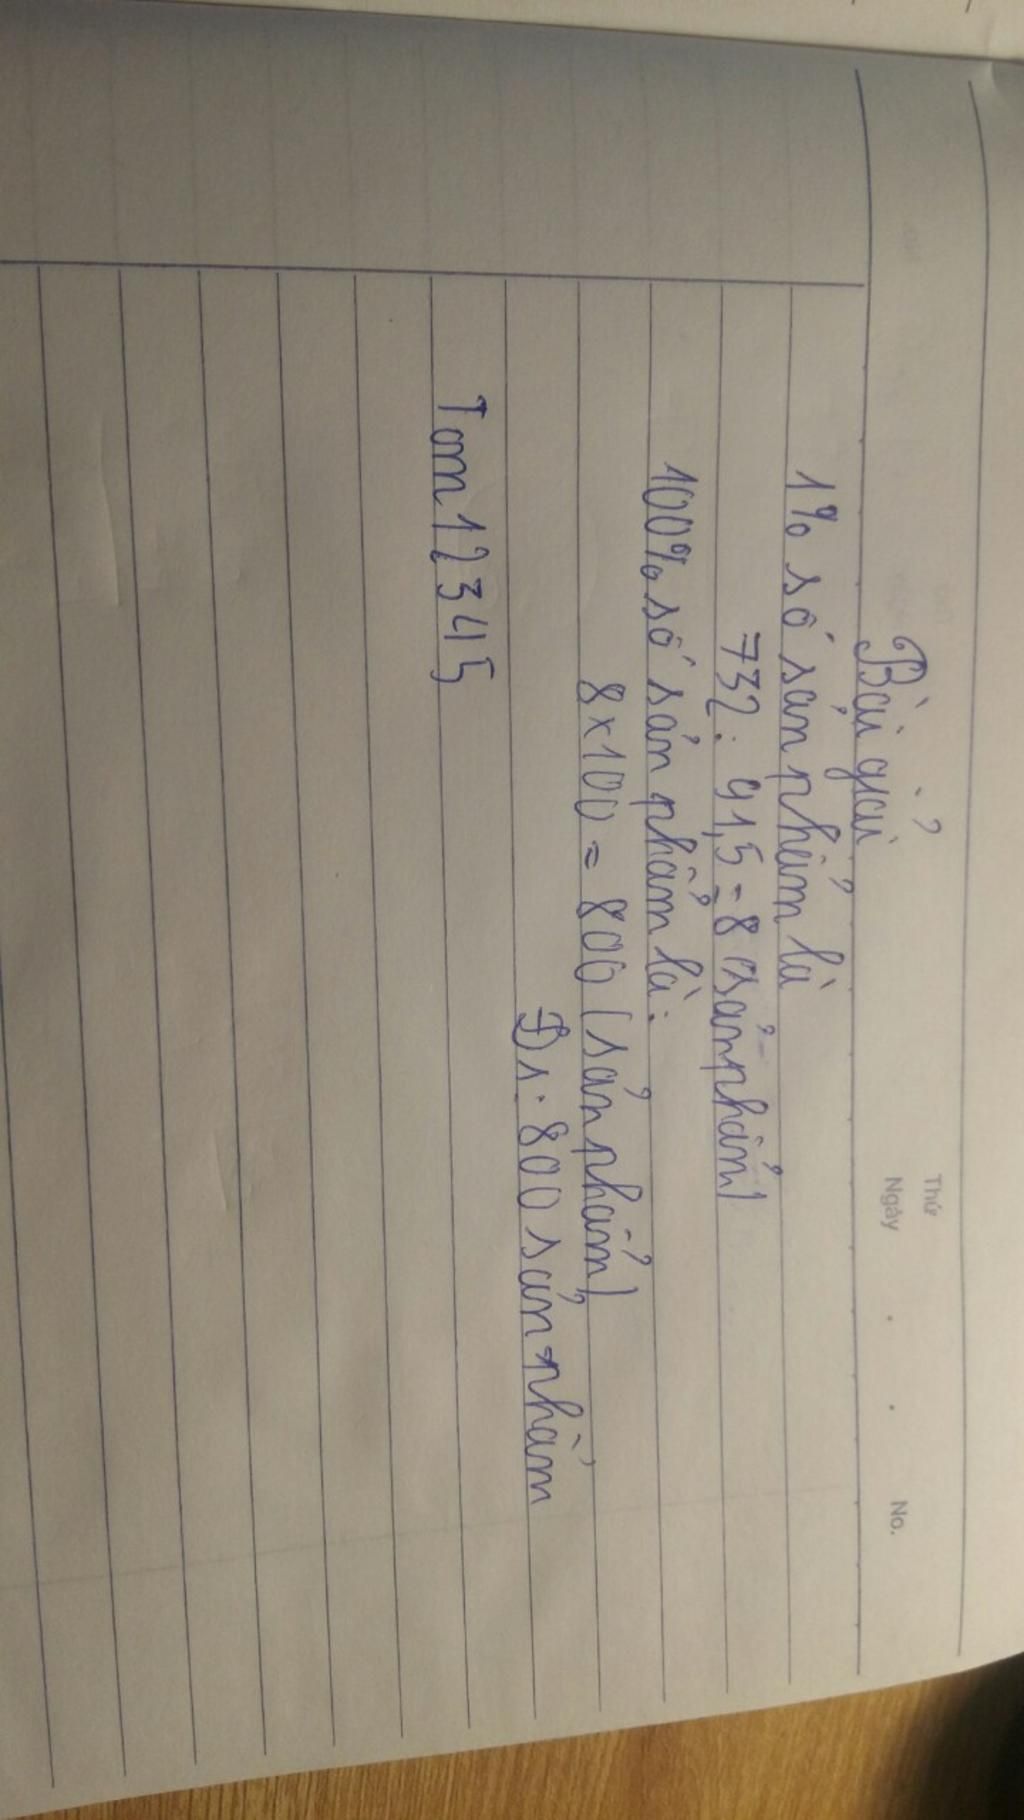 Thứ
Ngày . . No.
Bài giải
1% số sản phẩm là
732 : 91,5 = 8 (sản phẩm)
100% số sản phẩm là:
8 x 100 = 800 (sản phẩm)
Đs: 800 sản phẩm
Tom12345